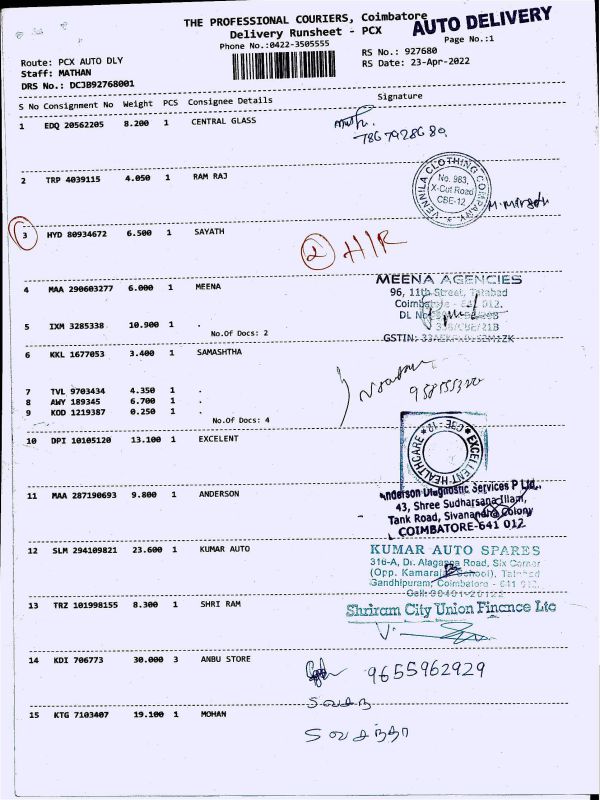 THE PROFESSIONAL COURIERS, Coimbatore
AUTO DELIVERY
Delivery Runsheet - PCX
Phone No.:0422-3505555
Page No.:1
Route: PCX AUTO DLY
RS No.: 927680
Staff: MATHAN
RS Date: 23-Apr-2022
DRS No.: DCJB92768001
S No Consignment No Weight PCS Consignee Details Signature
1 EDQ 20562205 8.200 1 CENTRAL GLASS
2 TRP 4039115 4.050 1 RAM RAJ
VENNILA CLOTHING COMPANY
No. 983,
X-Cut Road
CBE-12
3 HYD 80934672 6.500 1 SAYATH
2 HIR
4 MAA 290603277 6.000 1 MEENA
MEENA AGENCIES
96, 11th Street, Tatabad
Coimbatore - 641 012.
DL No
GSTIN:
5 IXM 3285338 10.900 1 .
No.Of Docs: 2
6 KKL 1677053 3.400 1 SAMASHTHA
7 TVL 9703434 4.350 1 .
8 AWY 189345 6.700 1 .
9 KOD 1219387 0.250 1 .
No.Of Docs: 4
10 DPI 10105120 13.100 1 EXCELENT
EXCELLENT HEALTHCARE * CBE-12 *
11 MAA 287190693 9.800 1 ANDERSON
Anderson Diagnostic Services P Ltd.,
43, Shree Sudharsana Illam,
Tank Road, Sivananda Colony
COIMBATORE-641 012
12 SLM 294109821 23.600 1 KUMAR AUTO
KUMAR AUTO SPARES
316-A, Dr. Alagappa Road, Six Corner
(Opp. Kamaraj School), Tatabad
Gandhipuram, Coimbatore - 641 012.
13 TRZ 101998155 8.300 1 SHRI RAM
Shriram City Union Finance Ltd
14 KDI 706773 30.000 3 ANBU STORE
9655962929
15 KTG 7103407 19.100 1 MOHAN
வசந்தா